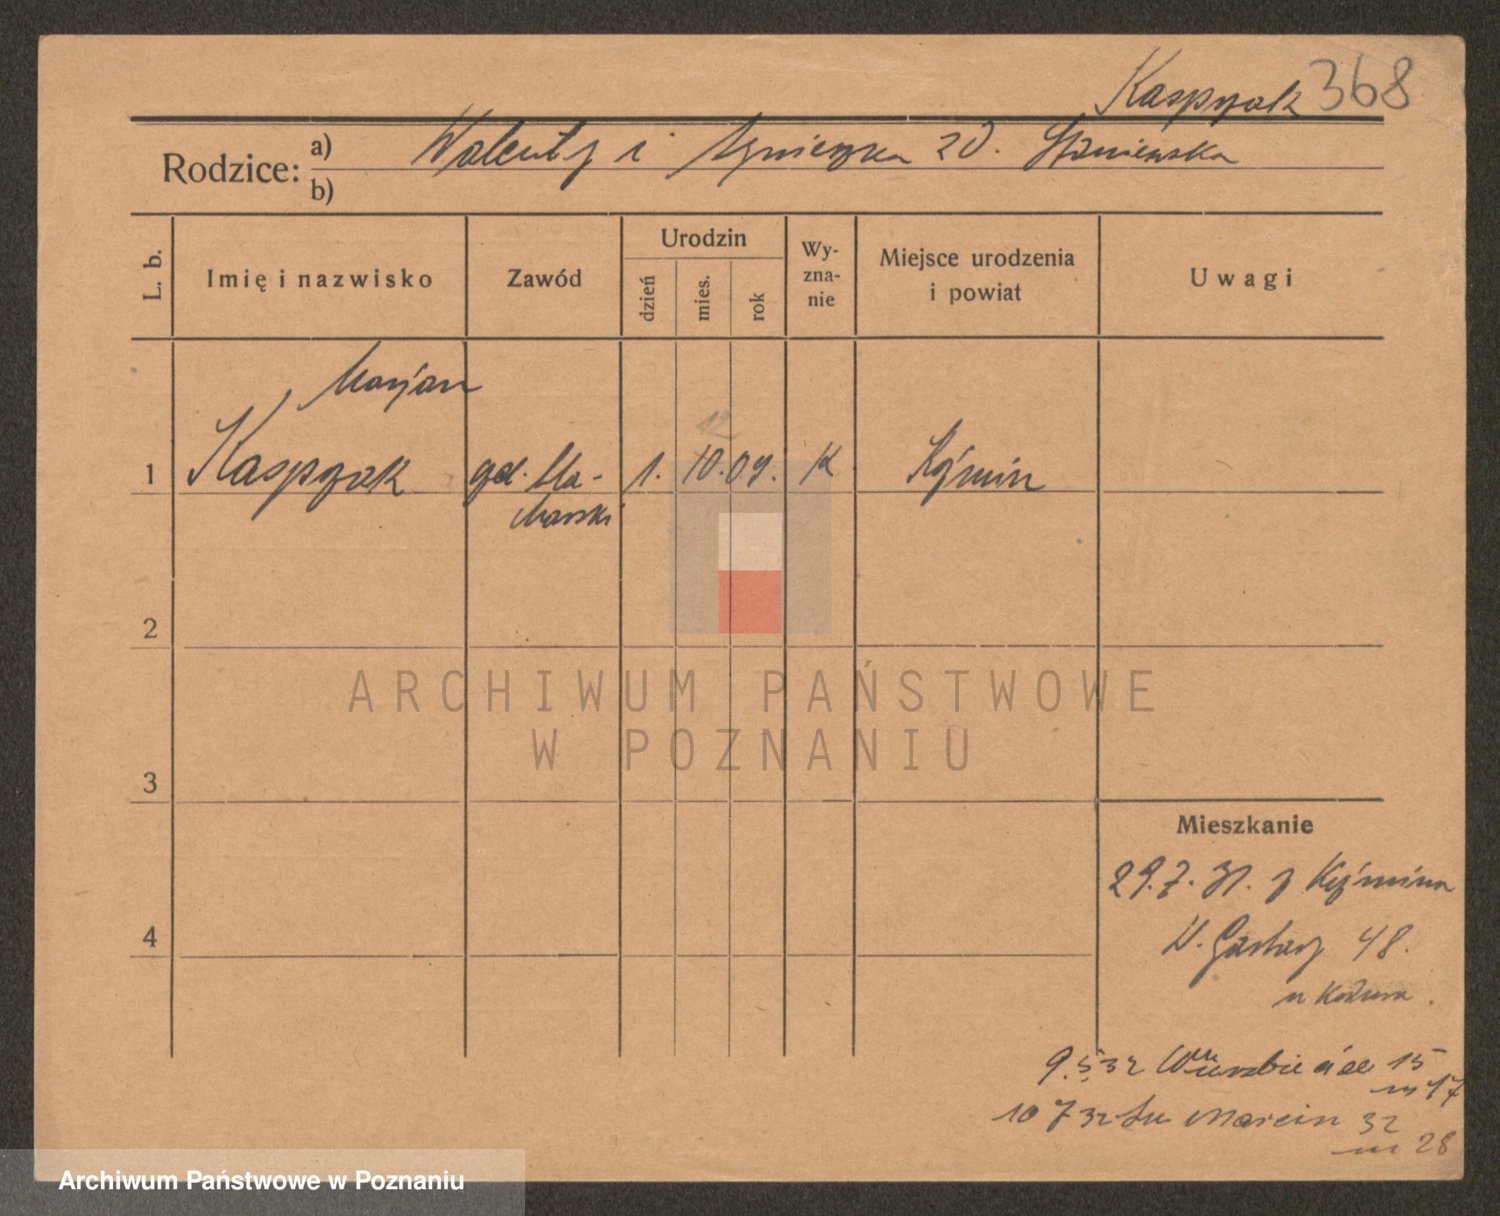 Kasprzak 368
Rodzice: a) Walenty i Agnieszka zd.
b)
L. b.
Imię i nazwisko
Zawód
Urodzin
dzień
mies.
rok
Wy-
zna-
nie
Miejsce urodzenia
i powiat
Uwagi
Marjan
12
1 Kasprzak
1. 10. 09. K
Kźmin
2
3
4
ARCHIWUM PAŃSTWOWE
W POZNANIU
Mieszkanie
29. 7. 31. z
48.
u
9. 5 32 15
m 17
10 7 32 Św Marcin 32
m 28
Archiwum Państwowe w Poznaniu